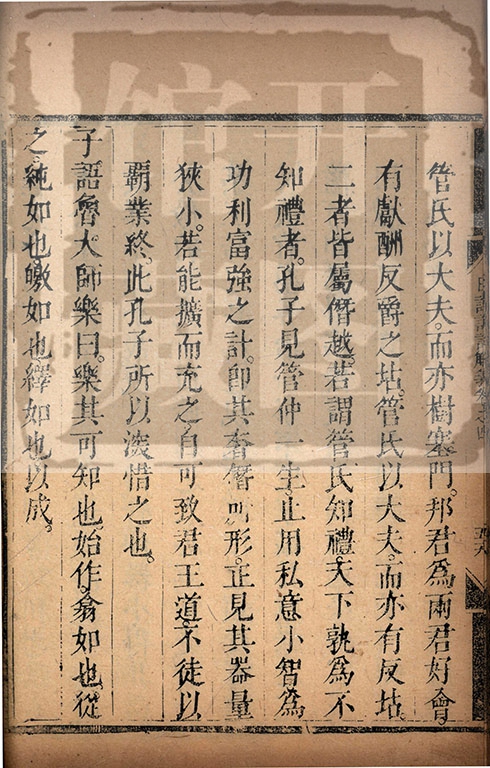 管氏以大夫。而亦樹塞門。邦君爲兩君好會。
有獻酬反爵之坫。管氏以大夫。而亦有反坫。
二者皆屬僭越。若謂管氏知禮。天下孰爲不
知禮者。孔子見管仲一生。止用私意小智。爲
功利富強之計。卽其奢僭形。正見其器量
狹小。若能擴而充之。自可致君王道。不徒以
霸業終。此孔子所以深惜之也。
子語魯大師樂曰。樂其可知也。始作。翕如也。從
之。純如也。皦如也。繹如也。以成。